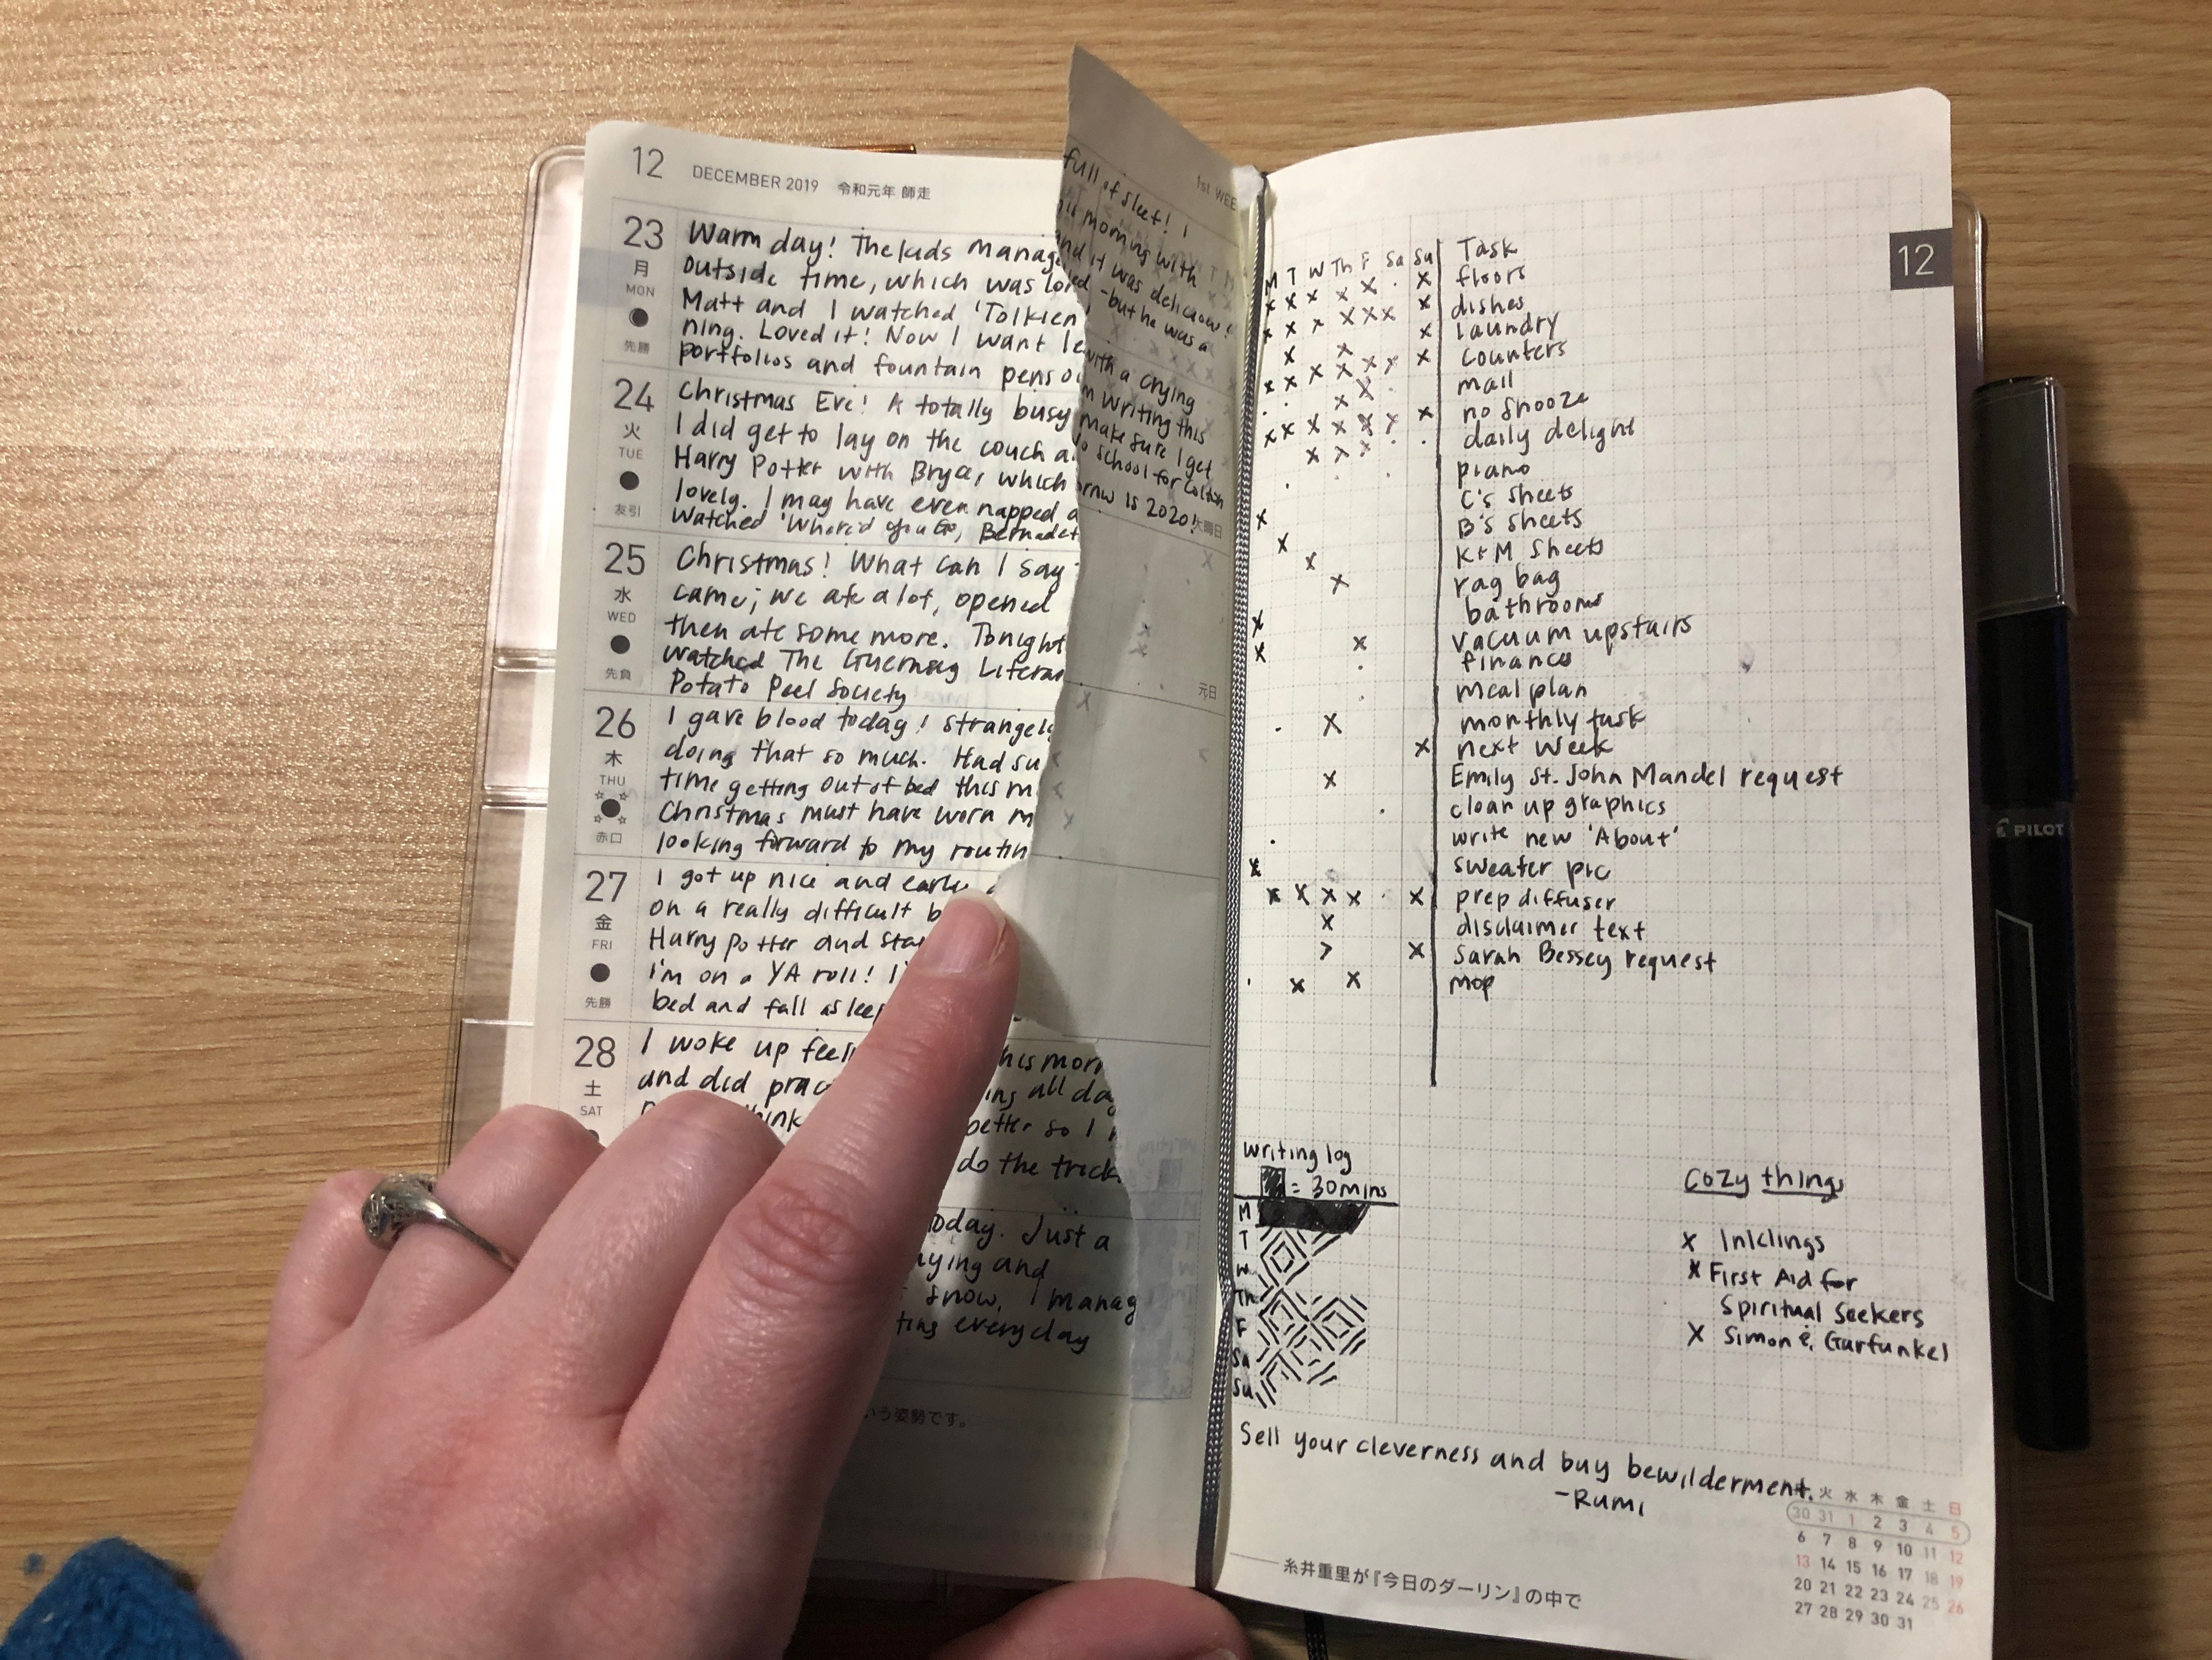 12 DECEMBER 2019 令和元年 師走
23 月 MON 先勝
Warm day! The kids manag
outside time, which was lo
Matt and I watched 'Tolkien'
ning. Loved it! Now I want le
portfolios and fountain pens
24 火 TUE 友引
Christmas Eve! A totally busy
I did get to lay on the couch a
Harry Potter with Bryce, which
lovely. I may have even napped a
Watched 'Where'd You Go, Bernadet
25 水 WED 先負
Christmas! What can I say
came; we ate a lot, opened
then ate some more. Tonight
watched The Guernsey Literar
Potato Peel Society
26 木 THU 赤口
I gave blood today! Strangely
doing that so much. Had su
time getting out of bed this m
Christmas must have worn m
looking forward to my routin
27 金 FRI 先勝
I got up nice and early
on a really difficult b
Harry Potter and sta
I'm on a YA roll! I'
bed and fall asleep
28 土 SAT
I woke up feel
and did prac
think
1st WEE
full of sleet! I
morning with
and it was delicious!
-but he was a
with a crying
writing this
make sure I get
school for Colton
rrow is 2020!
火曜日
元日
his morn
ing all da
better so I
do the trick.
today. Just a
aying and
snow, I manag
ting everyday
いう姿勢です。
12
M T W Th F Sa Su Task
floors
dishes
laundry
counters
mail
no snooze
daily delight
piano
C's sheets
B's sheets
K+M sheets
rag bag
bathrooms
vacuum upstairs
finances
meal plan
monthly task
next week
Emily St. John Mandel request
clean up graphics
write new 'About'
sweater pic
prep diffuser
disclaimer text
Sarah Bessey request
mop
writing log
= 30 mins
M
T
W
Th
F
Sa
Su
Cozy things
x Inklings
x First Aid for
Spiritual Seekers
x Simon & Garfunkel
Sell your cleverness and buy bewilderment.
-Rumi
火 水 木 金 土 日
30 31 1 2 3 4 5
6 7 8 9 10 11 12
13 14 15 16 17 18 19
20 21 22 23 24 25 26
27 28 29 30 31
糸井重里が『今日のダーリン』の中で
PILOT